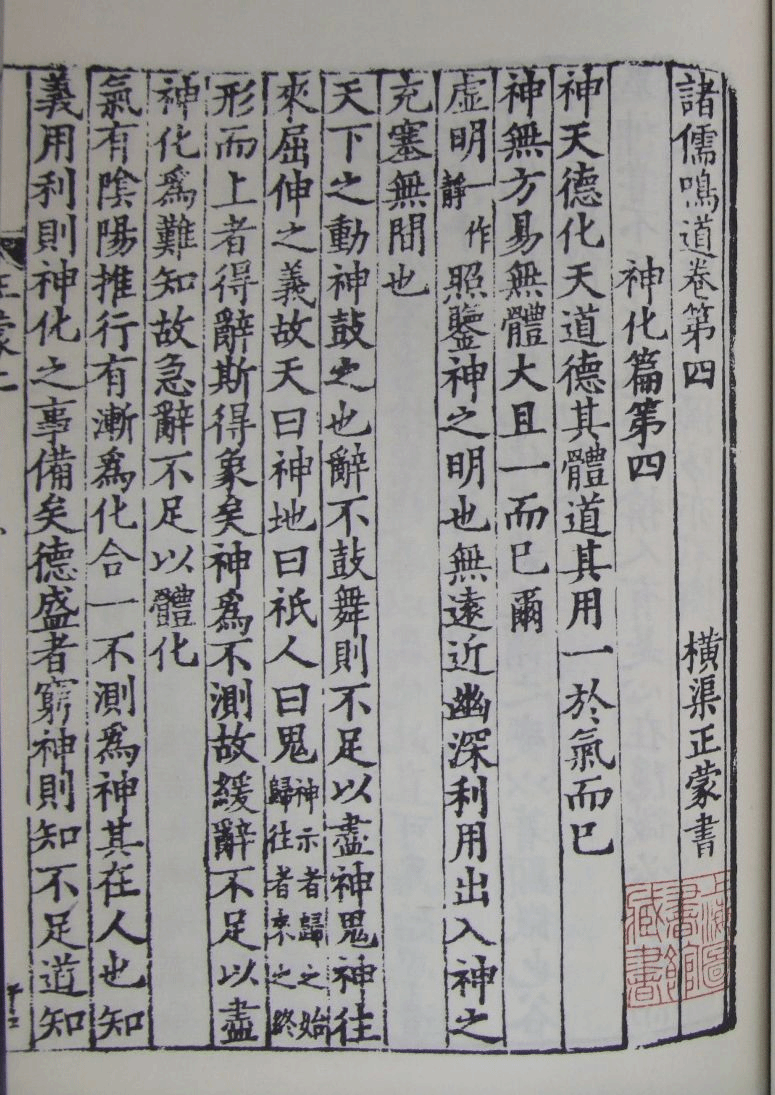 諸儒鳴道卷第四　橫渠正蒙書
神化篇第四
神天德化天道德其體道其用一於氣而已
神無方易無體大且一而已爾
虛明一作靜照鑒神之明也無遠近幽深利用出入神之
充塞無間也
天下之動神鼓之也辭不鼓舞則不足以盡神鬼神往
來屈伸之義故天曰神地曰祇人曰鬼神示者歸之始歸往者來之終
形而上者得辭斯得象矣神爲不測故緩辭不足以盡
神化爲難知故急辭不足以體化
氣有陰陽推行有漸爲化合一不測爲神其在人也知
義用利則神化之事備矣德盛者窮神則知不足道知
正蒙二
上海圖書館藏書